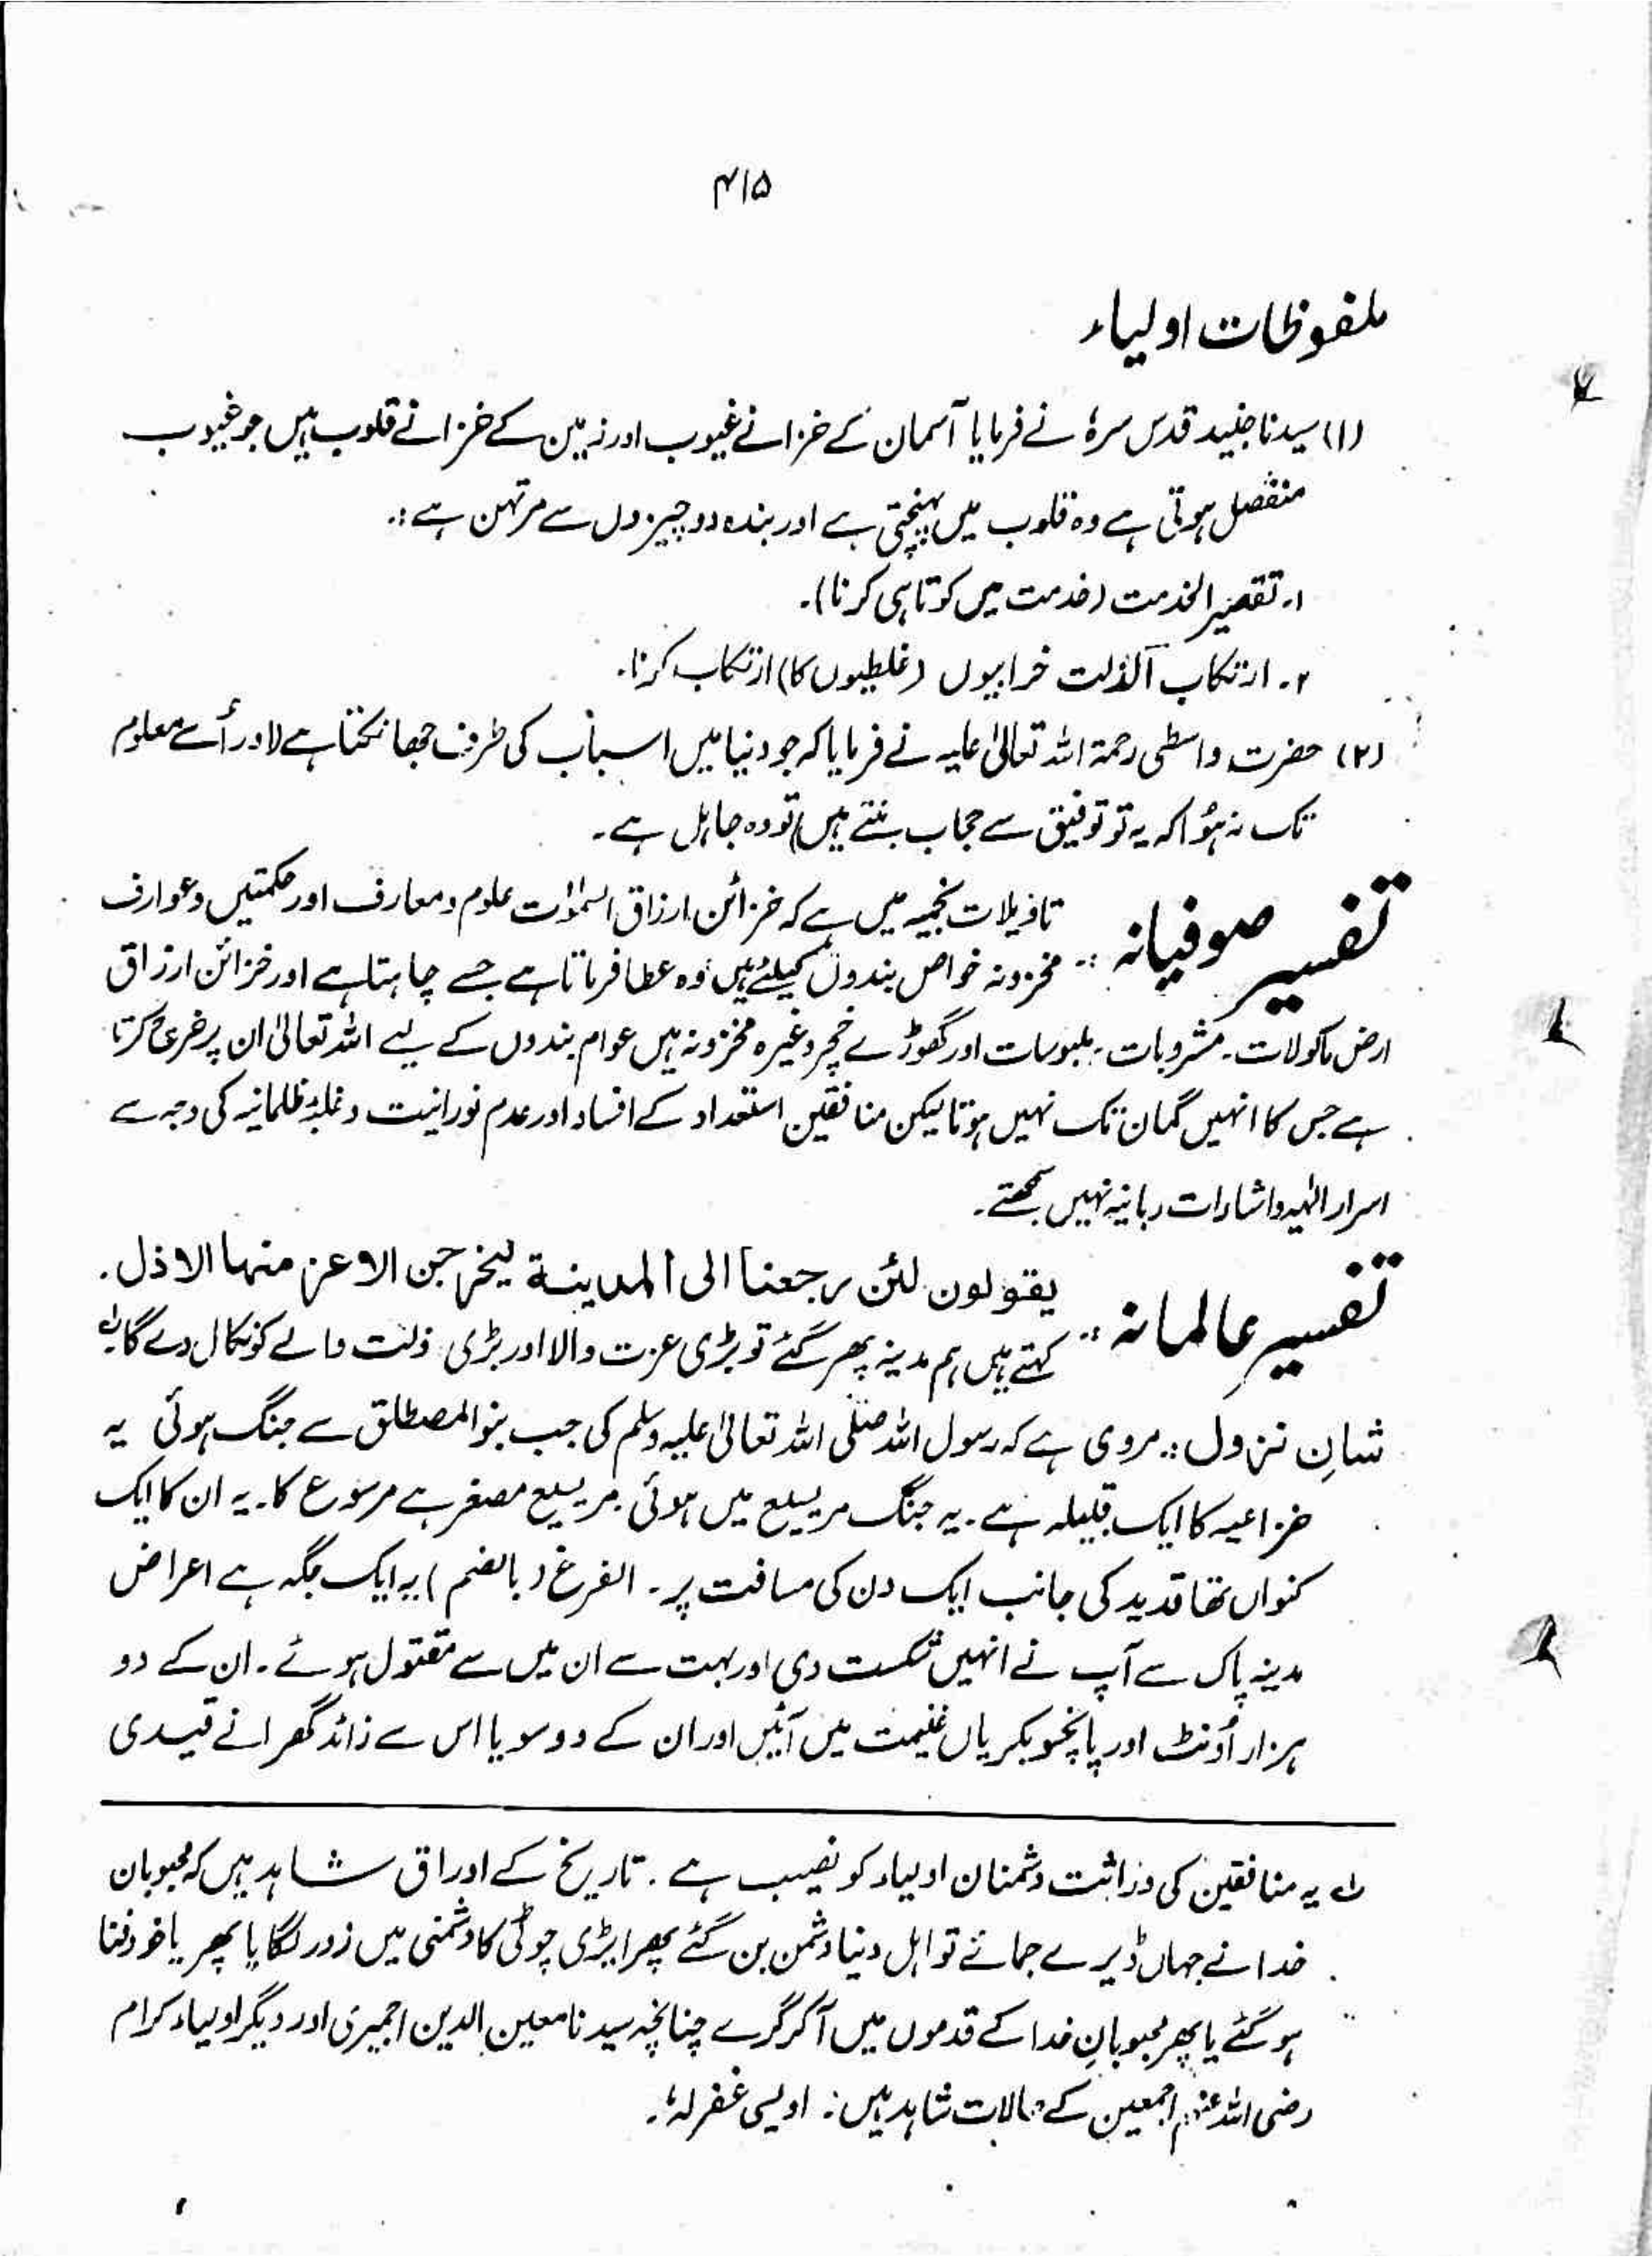 ۴۱۵
ملفوظات اولیاء
(۱) سیدنا جنید قدس سرہٗ نے فرمایا آسمان کے خزانے غیوب اور زمین کے خزانے قلوب ہیں جو غیوب
منفصل ہوتی ہے وہ قلوب میں پہنچتی ہے اور بندہ دو چیزوں سے مرتہن ہے :۔
۱۔ تقصیر الخدمت (خدمت میں کوتاہی کرنا)۔
۲۔ ارتکاب آلذلت خرابیوں (غلطیوں کا) ارتکاب کرنا۔
(۲) حضرت واسطی رحمۃ اللہ تعالیٰ علیہ نے فرمایا کہ جو دنیا میں اسباب کی طرف جھانکتا ہے (اور اُسے معلوم
تک نہ ہوُا کہ یہ تو توفیق سے حجاب بنتے ہیں) تو وہ جاہل ہے۔
تفسیر صوفیانہ :۔ تاویلات نجمیہ میں ہے کہ خزائن ارزاق السمٰوٰت علوم و معارف اور حکمتیں و عوارف
مخزونہ خواص بندوں کیلئے ہیں وہ عطا فرماتا ہے جسے چاہتا ہے اور خزائن ارزاق
ارض ماکولات۔ مشروبات۔ ملبوسات اور گھوڑے خچر وغیرہ مخزونہ ہیں عوام بندوں کے لیے اللہ تعالیٰ ان پر خرچ کرتا
ہے جس کا انہیں گمان تک نہیں ہوتا لیکن منافقین استعداد کے افساد اور عدم نورانیت و غلبۂ ظلمانیہ کی وجہ سے
اسرار الٰہیہ واشارات ربانیہ نہیں سمجھتے۔
تفسیر عالمانہ :۔ یقولون لئن رجعنا الی المدینۃ لیخرجن الاعز منہا الاذل۔
کہتے ہیں ہم مدینہ پھر گئے تو بڑی عزت والا اور بڑی ذلت والے کو نکال دے گا
شانِ نزول :۔ مروی ہے کہ رسول اللہ صلی اللہ تعالیٰ علیہ وسلم کی جب بنو المصطلق سے جنگ ہوئی یہ
خزاعیہ کا ایک قبیلہ ہے۔ یہ جنگ مریسیع میں ہوئی۔ مریسیع مصغر ہے مرسوع کا۔ یہ ان کا ایک
کنواں تھا قدید کی جانب ایک دن کی مسافت پر۔ الفرغ (بالضم) یہ ایک جگہ ہے اعراض
مدینہ پاک سے آپ نے انہیں شکست دی اور بہت سے ان میں سے مقتول ہوئے۔ ان کے دو
ہزار اُونٹ اور پانچسو بکریاں غنیمت میں آئیں اور ان کے دو سو یا اس سے زائد گھرانے قیدی
؎ یہ منافقین کی وراثت دشمنان اولیاء کو نصیب ہے۔ تاریخ کے اوراق شاہد ہیں کہ محبوبان
خدا نے جہاں ڈیرے جمائے تو اہل دنیا دشمن بن گئے پھر ایڑی چوٹی کا دشمنی میں زور لگایا پھر یا خود فنا
ہو گئے یا پھر محبوبانِ خدا کے قدموں میں آکر گرے چنانچہ سیدنا معین الدین اجمیری اور دیگر اولیاء کرام
رضی اللہ عنہم اجمعین کے حالات شاہد ہیں :۔ اویسی غفرلہٗ۔